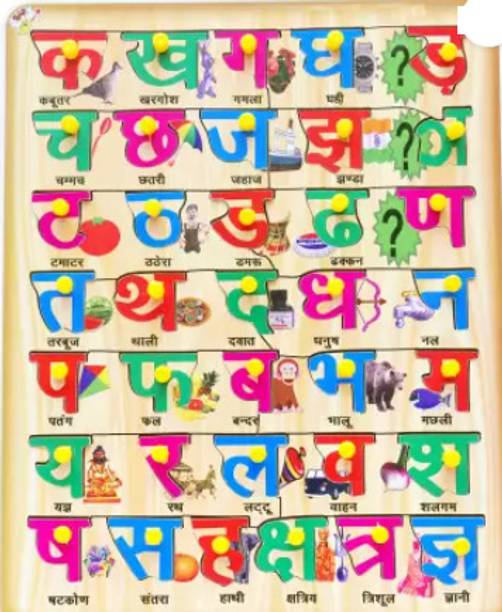 क ख ग घ ? ङ
कबूतर खरगोश गमला घड़ी
च छ ज झ ? ञ
चम्मच छतरी जहाज झण्डा
ट ठ ड ढ ? ण
टमाटर ठठेरा डमरू ढक्कन
त थ द ध न
तरबूज थाली दवात धनुष नल
प फ ब भ म
पतंग फल बन्दर भालू मछली
य र ल व श
यज्ञ रथ लट्टू वाहन शलगम
ष स ह क्ष त्र ज्ञ
षटकोण संतरा हाथी क्षत्रिय त्रिशूल ज्ञानी